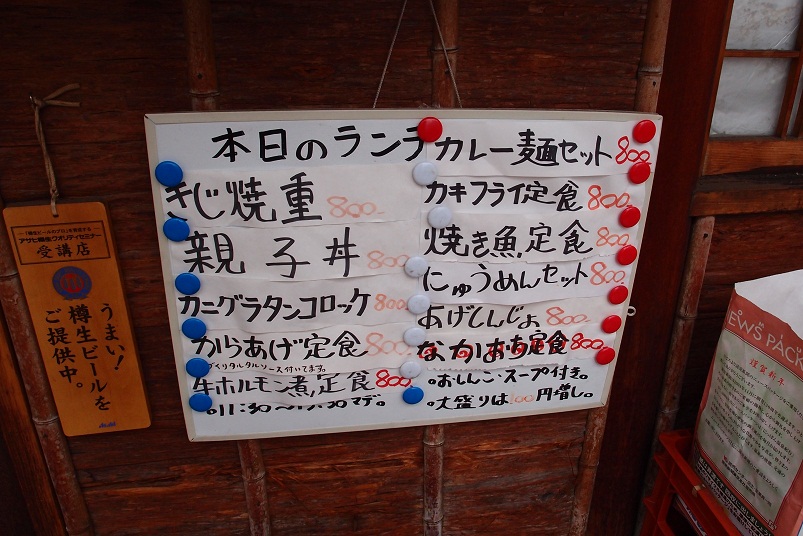 本日のランチ
きじ焼重 800.
親子丼 800.
カニグラタンコロッケ 800.
からあげ定食 800.
づくりタルタルソース付いてます。
牛ホルモン煮定食 800.
カレー麺セット 800.
カキフライ定食 800.
焼き魚定食 800.
にゅうめんセット 800.
あげしんじょ 800.
なかおち定食 800.
おしんこ・スープ付き。
大盛りは100円増し。
樽生ビールのプロ
アサヒ樽生クオリティセミナー
受講店
うまい!
樽生ビールを
ご提供中。
Asahi
EWS PACK
謹賀新年